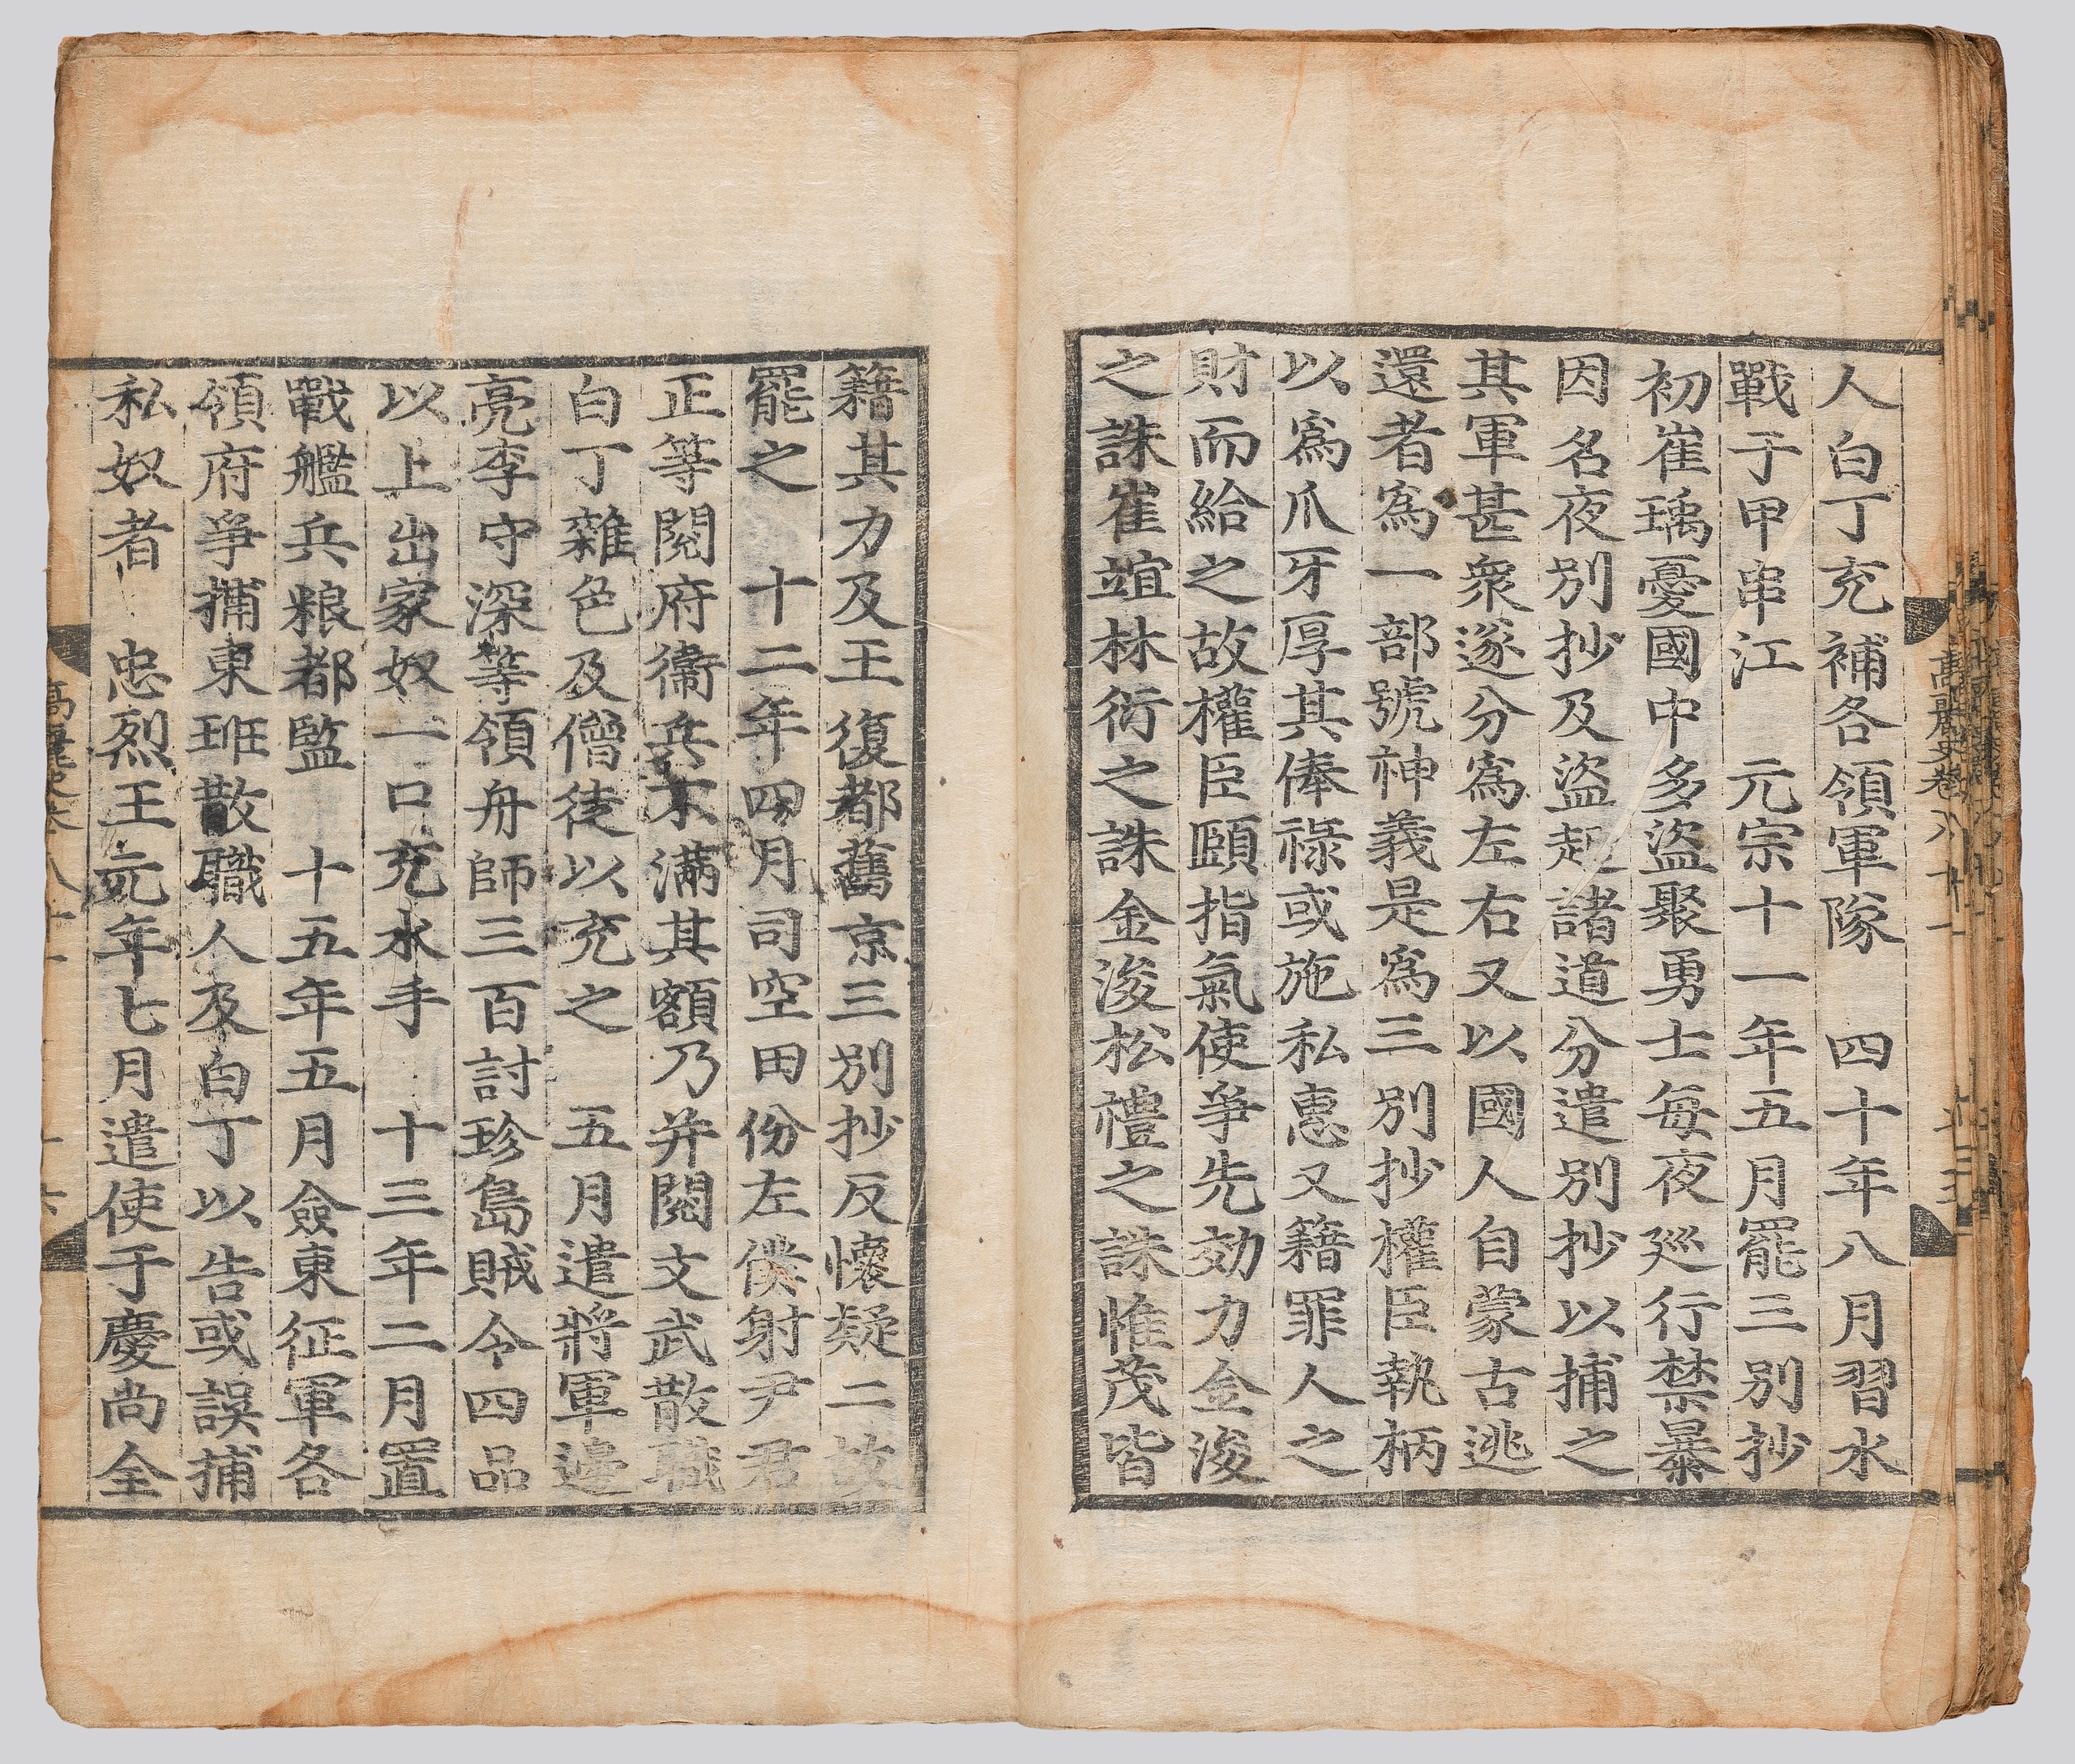 人白丁充補各領軍隊 四十年八月習水
戰于甲串江 元宗十一年五月罷三別抄
初崔瑀憂國中多盜聚勇士每夜廵行禁暴
因名夜別抄及盜起諸道分遣別抄以捕之
其軍甚衆遂分爲左右又以國人自蒙古逃
還者爲一部號神義是爲三別抄權臣執柄
以爲爪牙厚其俸祿或施私惠又籍罪人之
財而給之故權臣頤指氣使爭先効力金浚
之誅崔竩林衍之誅金浚松禮之誅惟茂皆
籍其力及王復都舊京三別抄反懷疑二故
罷之 十二年四月司空田份左僕射尹君
正等閱府衞兵不滿其額乃并閱文武散職
白丁雜色及僧徒以充之 五月遣將軍邊
亮李守深等領舟師三百討珍島賊令四品
以上出家奴一口充水手 十三年二月置
戰艦兵粮都監 十五年五月僉東征軍各
領府爭捕東班散職人及白丁以告或誤捕
私奴者 忠烈王元年七月遣使于慶尚全
高麗史卷八十一